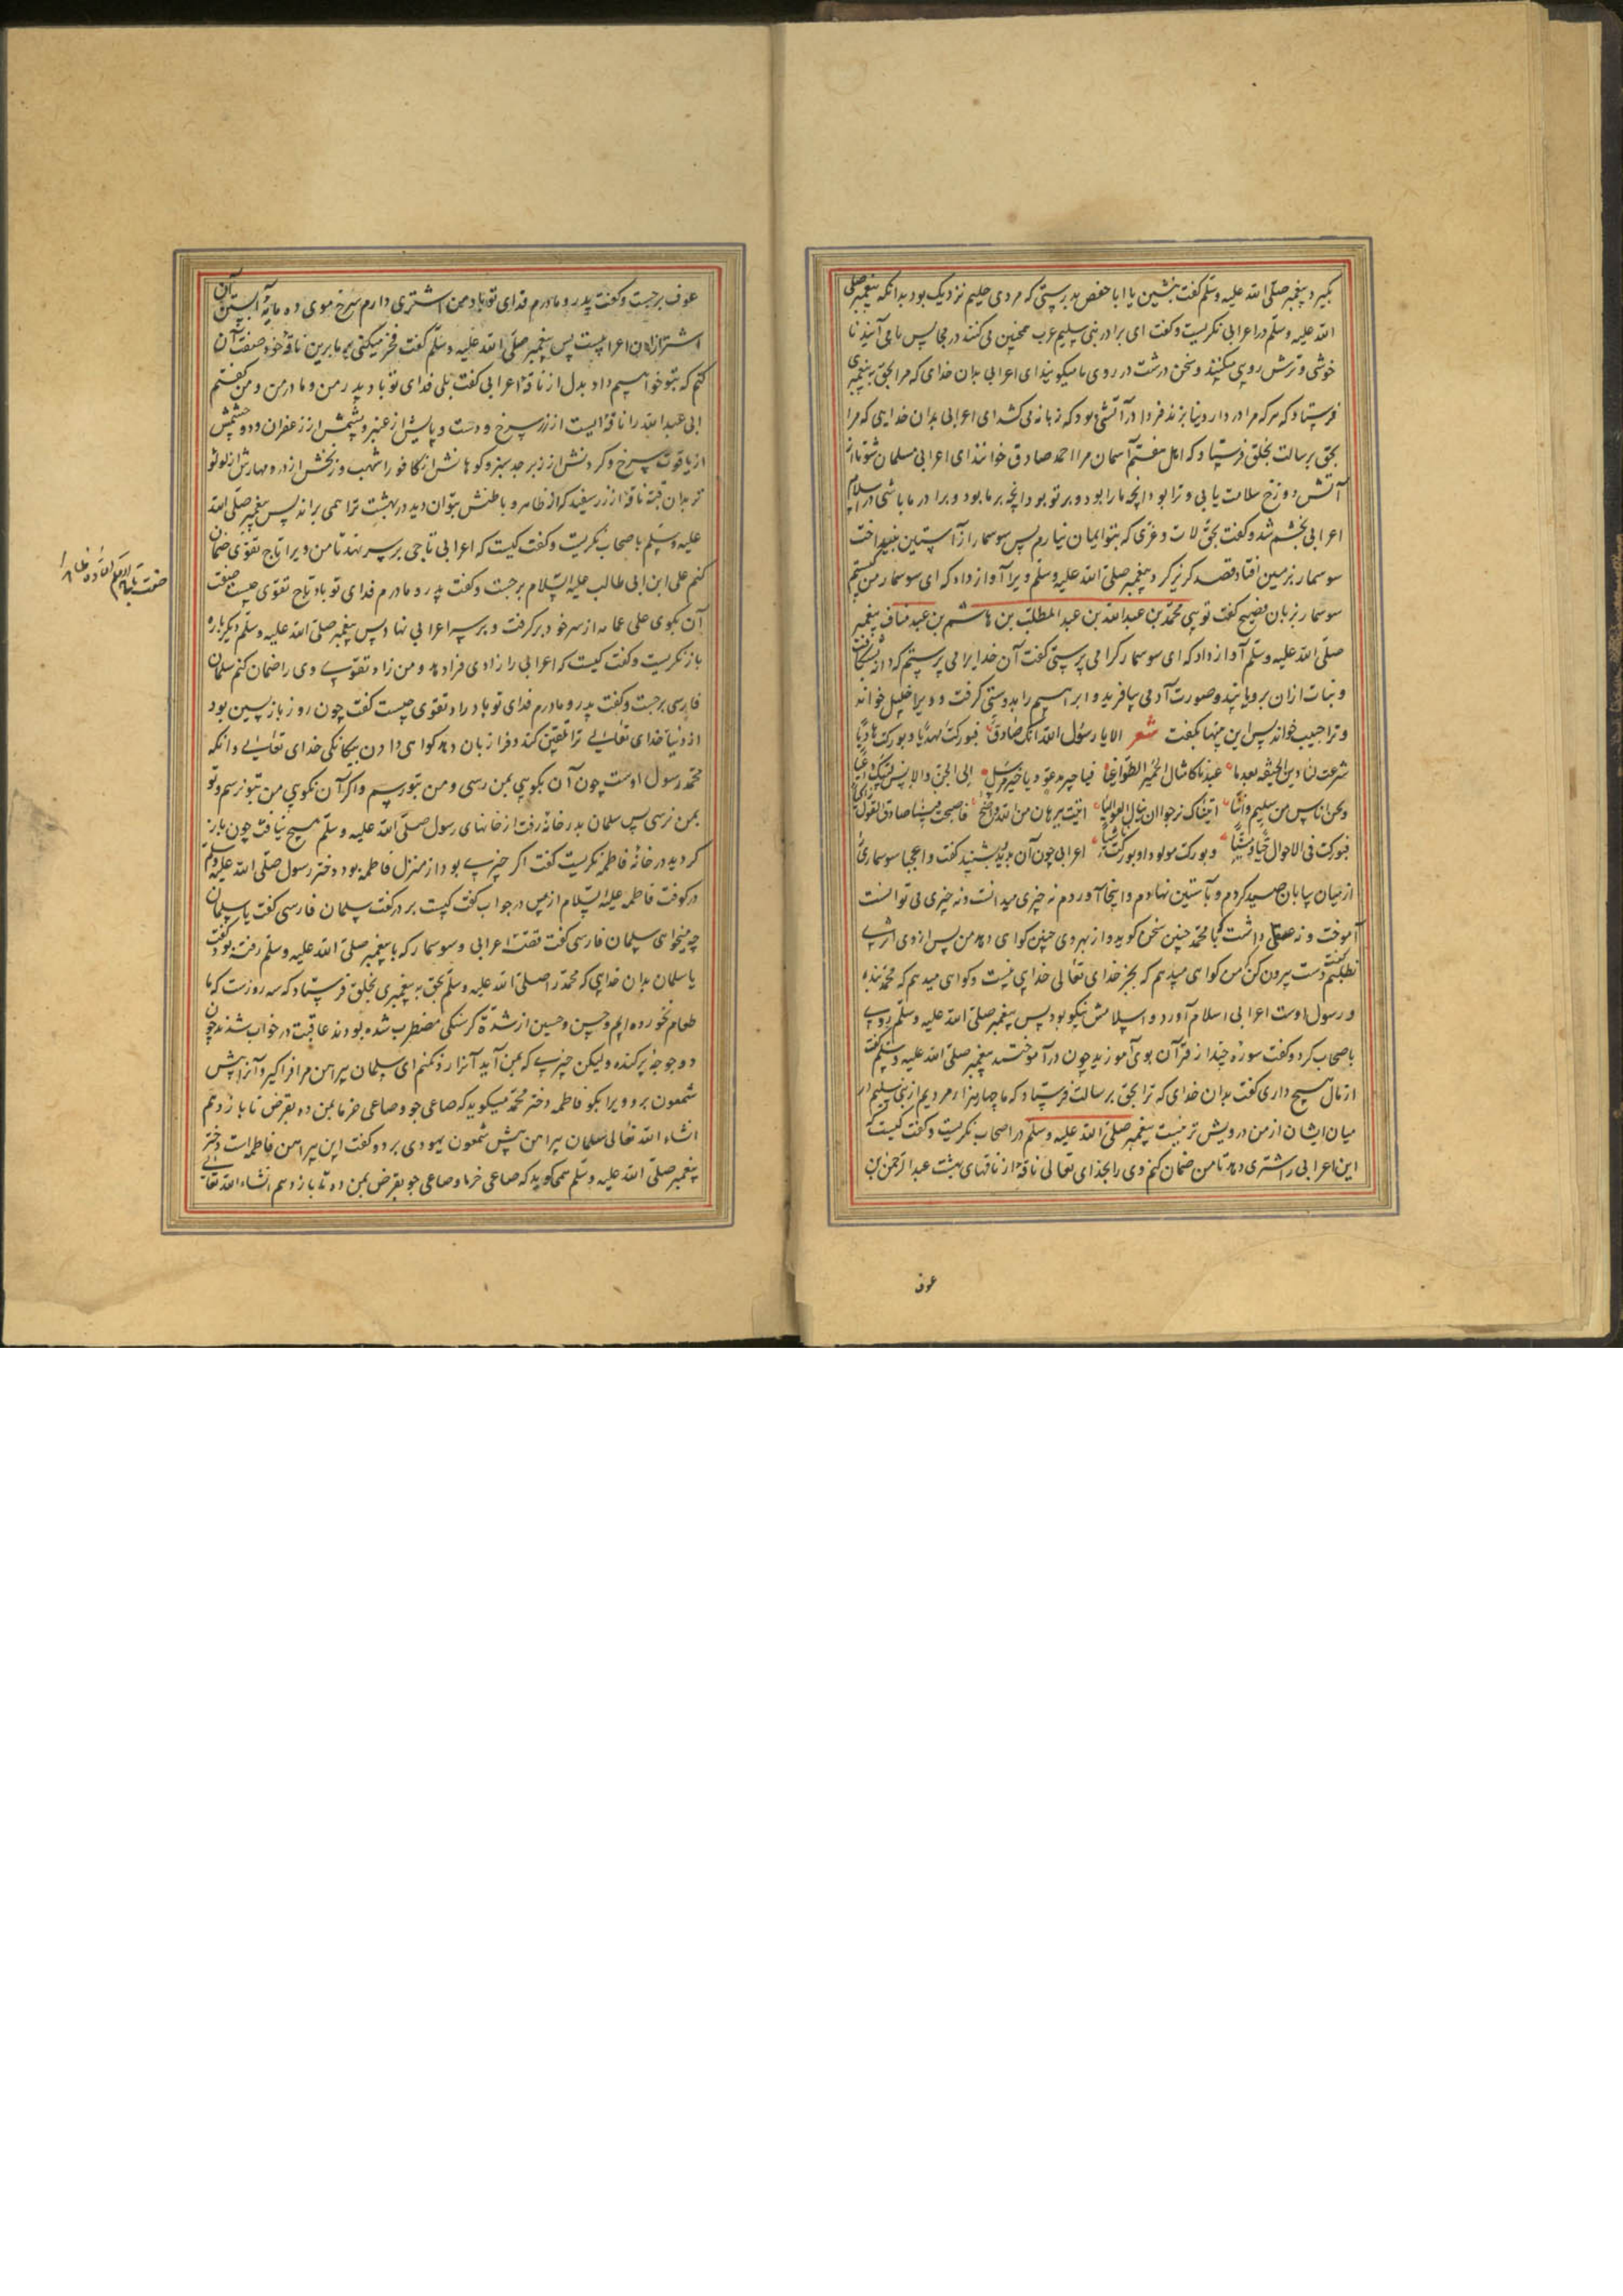 بگیرد پیغمبر صلّی الله علیه وسلّم گفت بنشین یا ابا حفص بدرستی که مردی حلیم نزدیک بود بدانکه پیغمبر صلی
الله علیه وسلّم در اعرابی نگریست و گفت ای برادر بنی سلیم عرب همچنین می کنند در مجالس ما می آیند نا
خوشی و ترش رویی میکنند و سخن درشت در روی ما میگویند ای اعرابی بدان خدای که مرا بحق به پیغمبری
فرستاد که هر که مرا در دار دنیا بزند فردا در آتشی بود که زبانه می کشد ای اعرابی بدان خدایی که مرا
بحق برسالت بخلق فرستاد که اهل هفتم آسمان مرا احمد صادق خوانند ای اعرابی مسلمان شو تا از
آتش دوزخ سلامت یابی و ترا بود آنچه ما را بود و بر تو بود آنچه بر ما بود و برادر ما باشی در اسلام
اعرابی بخشم شد و گفت بحق لات و عزی که بتو ایمان نیارم پس سوسمار از آستین بینداخت
سوسمار بزمین افتاد قصد گریز کرد پیغمبر صلّی الله علیه وسلّم ویرا آواز داد که ای سوسمار من کیستم
سوسمار بزبان فصیح گفت تویی محمّد بن عبد الله بن عبد المطلب بن هاشم بن عبد مناف پیغمبر
صلّی الله علیه وسلّم آواز داد که ای سوسمار کرا می پرستی گفت آن خدایرا می پرستم که دانه بشکافت
و نبات ازان برویانید و صورت آدمی بیافرید و ابرهیم را بدوستی گرفت و ویرا خلیل خواند
و ترا حبیب خواند پس این بیتها بگفت شعر الا یا رسول الله انک صادق فبورکت مهدیا و بورکت هادیا
شرعت لنا دین الحنیفة بعدما عبدنا کامثال الحمیر الطواغیا فیا خیر مدعو و یا خیر مرسل الی الجن والانس لبیک داعیا
ونحن اناس من سلیم واننا اتیناک نرجو ان ننال العوالیا اتیت ببرهان من الله واضح فاصبحت فینا صادق القول
فبورکت فی الاحوال حیا ومیتا وبورکت مولودا وبورکت ناشیا اعرابی چون آن بدید بشنید گفت وا عجبا سوسماری
از میان بیابان صید کردم و بآستین نهادم و اینجا آوردم نه چیزی میدانست و نه چیزی می توانست
آموخت و نه عقلی داشت با محمّد چنین سخن گوید و از بهر وی چنین گواهی دهد من پس ازوی اثری
نطلبم دست بیرون کن که من گواهی میدهم که بجز خدای تعالی خدایی نیست و گواهی میدهم که محمّد بنده
و رسول اوست اعرابی اسلام آورد و اسلامش نیکو بود پس پیغمبر صلّی الله علیه وسلّم روی
باصحاب کرد و گفت سوره چند از قرآن بوی آموزید چون در آموختند پیغمبر صلّی الله علیه وسلّم گفت
از مال هیچ داری گفت بدان خدای که ترا بحق برسالت فرستاد که ما چهار هزار مردیم از بنی سلیم در
میان ایشان از من درویش تر نیست پیغمبر صلّی الله علیه وسلّم در اصحاب نگریست و گفت کیست که
این اعرابی را شتری دهد تا من ضمان کنم وی را بخدای تعالی ناقهٔ از ناقهای بهشت عبد الرحمن بن
عوف
عوف برجست و گفت پدر و مادرم فدای تو باد من اشتری دارم سرخ موی ده ماهه آبستن آن
اشتر ازان اعرابیست پس پیغمبر صلّی الله علیه وسلّم گفت فخر میکنی بر ما برین ناقهٔ خود صفت آن
کنم که بتو خواهیم داد بدل از ناقهٔ اعرابی گفت بلی فدای تو باد پدر من و مادر من و من گفتم
ابی عبد الله را ناقهٔ ایست از زر سرخ و دست و پایش از عنبر و پشمش از زعفران و دو چشمش
از یاقوت سرخ و گردنش از زبرجد سبز و کوهانش از کافور اشهب و زنخش از در و مهارش از لولو
تر بدان قبه ناقهٔ از زر سفید که از ظاهر و باطنش بتوان دید در بهشت ترا همی براند پس پیغمبر صلی الله
علیه وسلّم باصحاب نگریست و گفت کیست که اعرابی تاجی بر سر نهد تا من ویرا تاج تقوی ضمان
کنم علی ابن ابی طالب علیه السّلام برجست و گفت پدر و مادرم فدای تو باد تاج تقوی چیست صفت
آن بگوی علی عمامه از سر خود برگرفت و بر سر اعرابی نهاد پس پیغمبر صلّی الله علیه وسلّم دیگرباره
باز نگریست و گفت کیست که اعرابی را زادی فرا دهد و من زاد تقوی وی را ضمان کنم سلمان
فارسی برجست و گفت پدر و مادرم فدای تو باد زاد تقوی چیست گفت چون روز بازپسین بود
از دنیا خدای تعالی ترا تلقین کند و فرا زبان دهد گواهی دادن بیگانگی خدای تعالی و انکه
محمّد رسول اوست چون آن بگویی بمن رسی و من بتو رسم و اگر آن نگویی من بتو نرسم و تو
بمن نرسی پس سلمان بدر خانه رفت از خانهای رسول صلّی الله علیه وسلّم هیچ نیافت چون باز
گردید در خانهٔ فاطمه نگریست گفت اگر چیزی بود از منزل فاطمه بود دختر رسول صلّی الله علیه وسلّم
در کوفت فاطمه علیها السّلام از پس در جواب گفت کیست بر در گفت سلمان فارسی گفت یا سلمان
چه میخواهی سلمان فارسی گفت قصّهٔ اعرابی و سوسمار که با پیغمبر صلّی الله علیه وسلّم رفته بود گفت
یا سلمان بدان خدایی که محمّد را صلّی الله علیه وسلّم بحق به پیغمبری بخلق فرستاد که سه روزست که ما
طعام نخورده ایم و حسن و حسین از شدّة گرسنگی مضطرب شده بودند عاقبت در خواب شدند چون
دو جوجهٔ پرکنده ولیکن چیزی که بمن آید آنرا رد نکنم ای سلمان پیراهن مرا فراگیر و آنرا پیش
شمعون بر و ویرا بگو فاطمه دختر محمّد میگوید که صاعی جو و صاعی خرما بمن ده بقرض تا باز دهم
انشاء الله تعالی سلمان پیراهن پیش شمعون یهودی برد و گفت این پیراهن فاطمه است دختر
پیغمبر صلّی الله علیه وسلّم همی گوید که صاعی خرما و صاعی جو بقرض بمن ده تا باز دهم انشاء الله تعالی